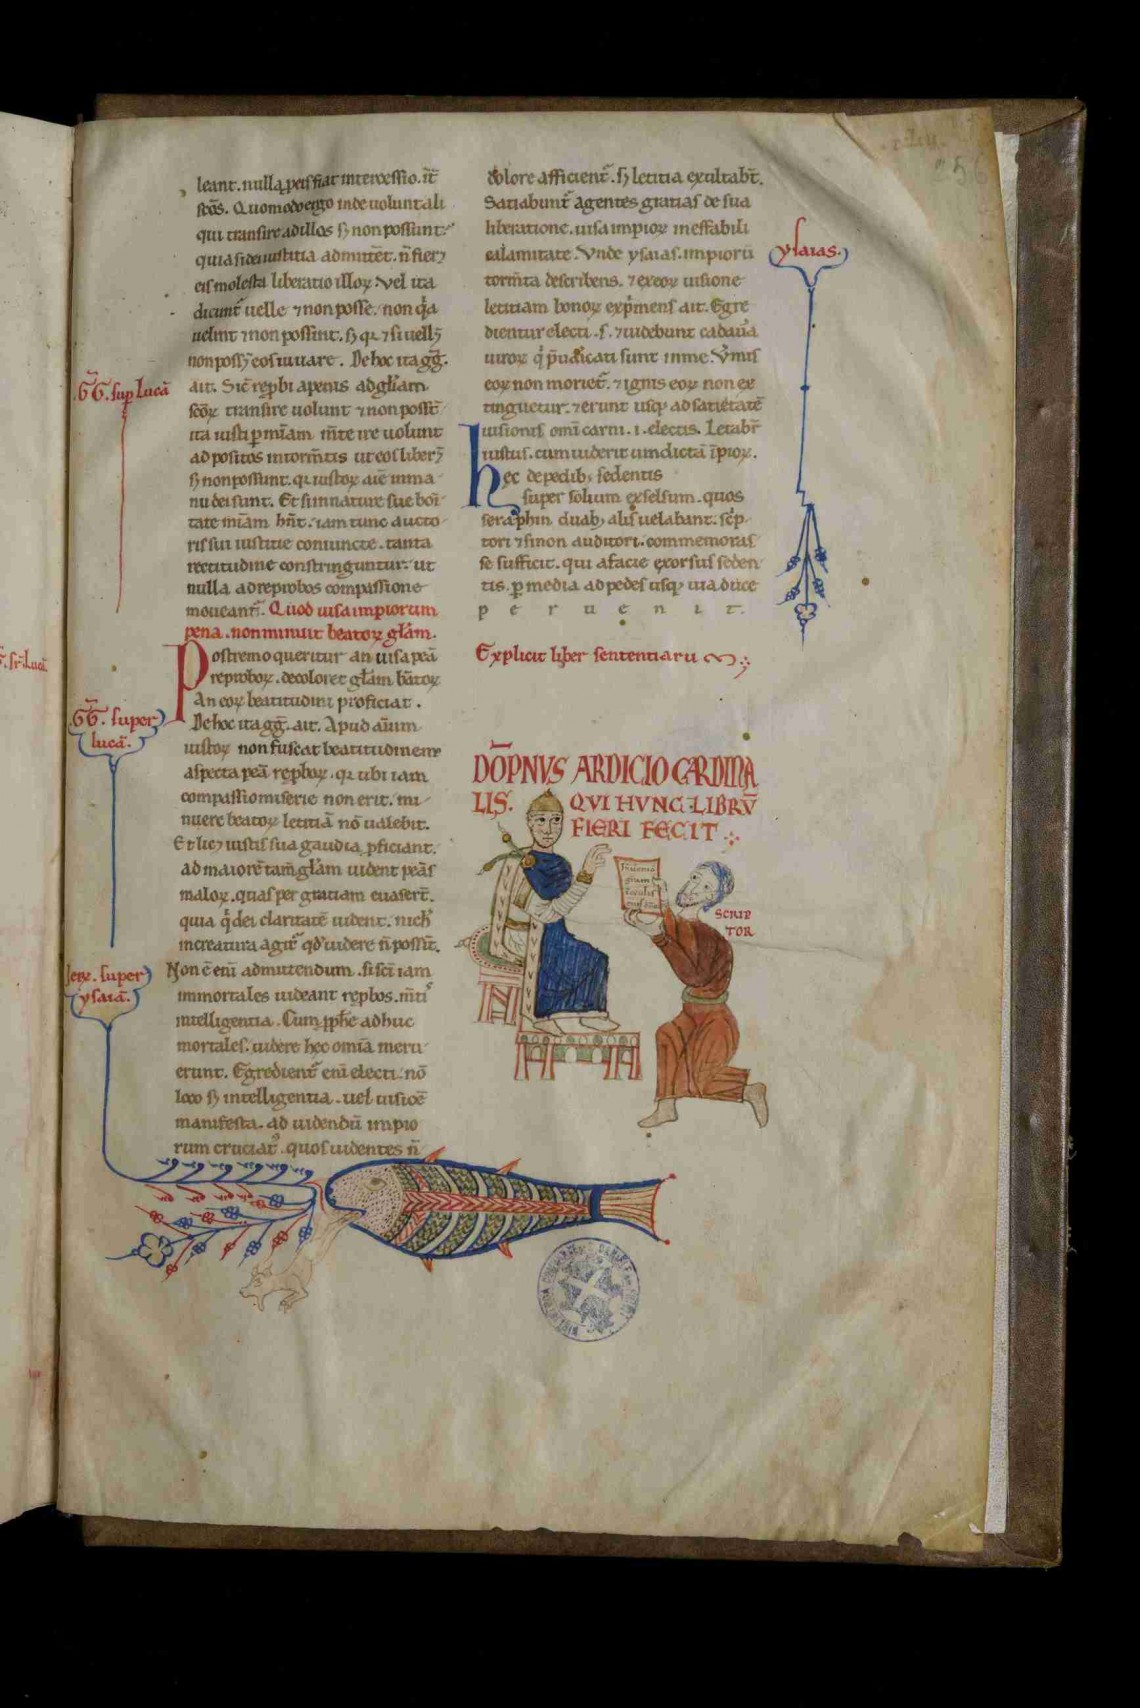 leant. nulla pͥeis fiat intercessio. it̃
sc̃os. Quomodo ergo inde uolunt ali
qui transire ad illos s; non possunt:
quia si dei iustitia admitt̃et. ñ fier;
eis molesta liberatio illoꝝ. Vel ita
dicunt̃ uelle ⁊ non posse. non q̇a
uelint ⁊ non possint. s; qꝛ ⁊ si uell;
non poss; eos iuuare. De hoc ita gg̃.
ait. Sic̃ rep̱bi a penis ad gl̃am
sc̃oꝝ transire uolunt ⁊ non poss̃t
ita iusti ꝑ mĩam m̃te ire uolunt
ad positos in torm̃tis ut eos liber;
s; non possunt. qꝛ iustoꝝ aĩe
nature sue boĩ
tate mĩam hñt: iam tunc aucto
ris sui iustitie coniuncte. tanta
rectitudine constringuntur: ut
nulla ad reprobos compassione
moueant̃. Quod uisa impiorum
pena. non minuit beatoꝝ gl̃am.
Postremo queritur an uisa peã
reproboꝝ. decoloret gl̃am b̃atoꝝ
An eoꝝ beatitudini proficiat.
De hoc ita gg̃. ait. Apud aĩum
iustoꝝ non fuscat beatitudinem
aspecta peã rep̱boꝝ. qꝛ ubi iam
compassio miserie non erit. mi
nuere beatoꝝ letitiã nõ ualebit.
Et lic; iustis sua gaudia ꝓficiant.
ad maiorẽ tam̃ gl̃am uident peãs
maloꝝ. quas per gratiam euasert̃.
quia q̇ dei claritatẽ uident. nich̃
in creatura agit̃ qd̃ uidere ñ possĩt.
Non ẽ enĩ admittendum. si sc̃i iam
immortales uideant rep̱bos. m̃tis
intelligentia. Cum ꝓph̃e adhuc
mortales. uidere hec omĩa meru
erunt. Egredient̃ enĩ electi. nõ
loco s; intelligentia. uel uisiõe
manifesta. ad uidendũ impio
rum cruciat̃. quos uidentes ñ
dolore afficient̃. s; letitia exultabt̃.
Satiabunt̃ agentes gratias de sua
liberatione. uisa impioꝝ ineffabili
calamitate. Vnde ysaias. impiorũ
torm̃ta describens. ⁊ ex eoꝝ uisione
letitiam bonoꝝ exp̃mens ait. Egre
dientur electi. s. ⁊ uidebunt cadaũa
uiroꝝ q̇ p̃uaricati sunt in me. V̾mis
eoꝝ non moriet̃. ⁊ ignis eoꝝ non ex
tinguetur: ⁊ erunt usq; ad satietatẽ
uisionis omĩ carni. i. electis. Letabt̃
iustus. cum uiderit uindictã ĩpioꝝ.
hec de pedib; sedentis
super solium exselsum. quos
seraphin duab; alis uelabant. sc̃p
tori ⁊ si non auditori. commemoras
se sufficit. qui a facie exorsus seden
tis. ꝑ media ad pedes usq; uia duce
peruenit.
Explicit liber sententiarũ
DÕPNVS ARDICIO CARDINA
LIS. QVI HVNC LIBRṼ
FIERI FECIT
SCRIP
TOR
GG̃. sup̱ Lucã
GG̃. super
lucã.
Ier̃. super
ysaiã.
ysaias.
256